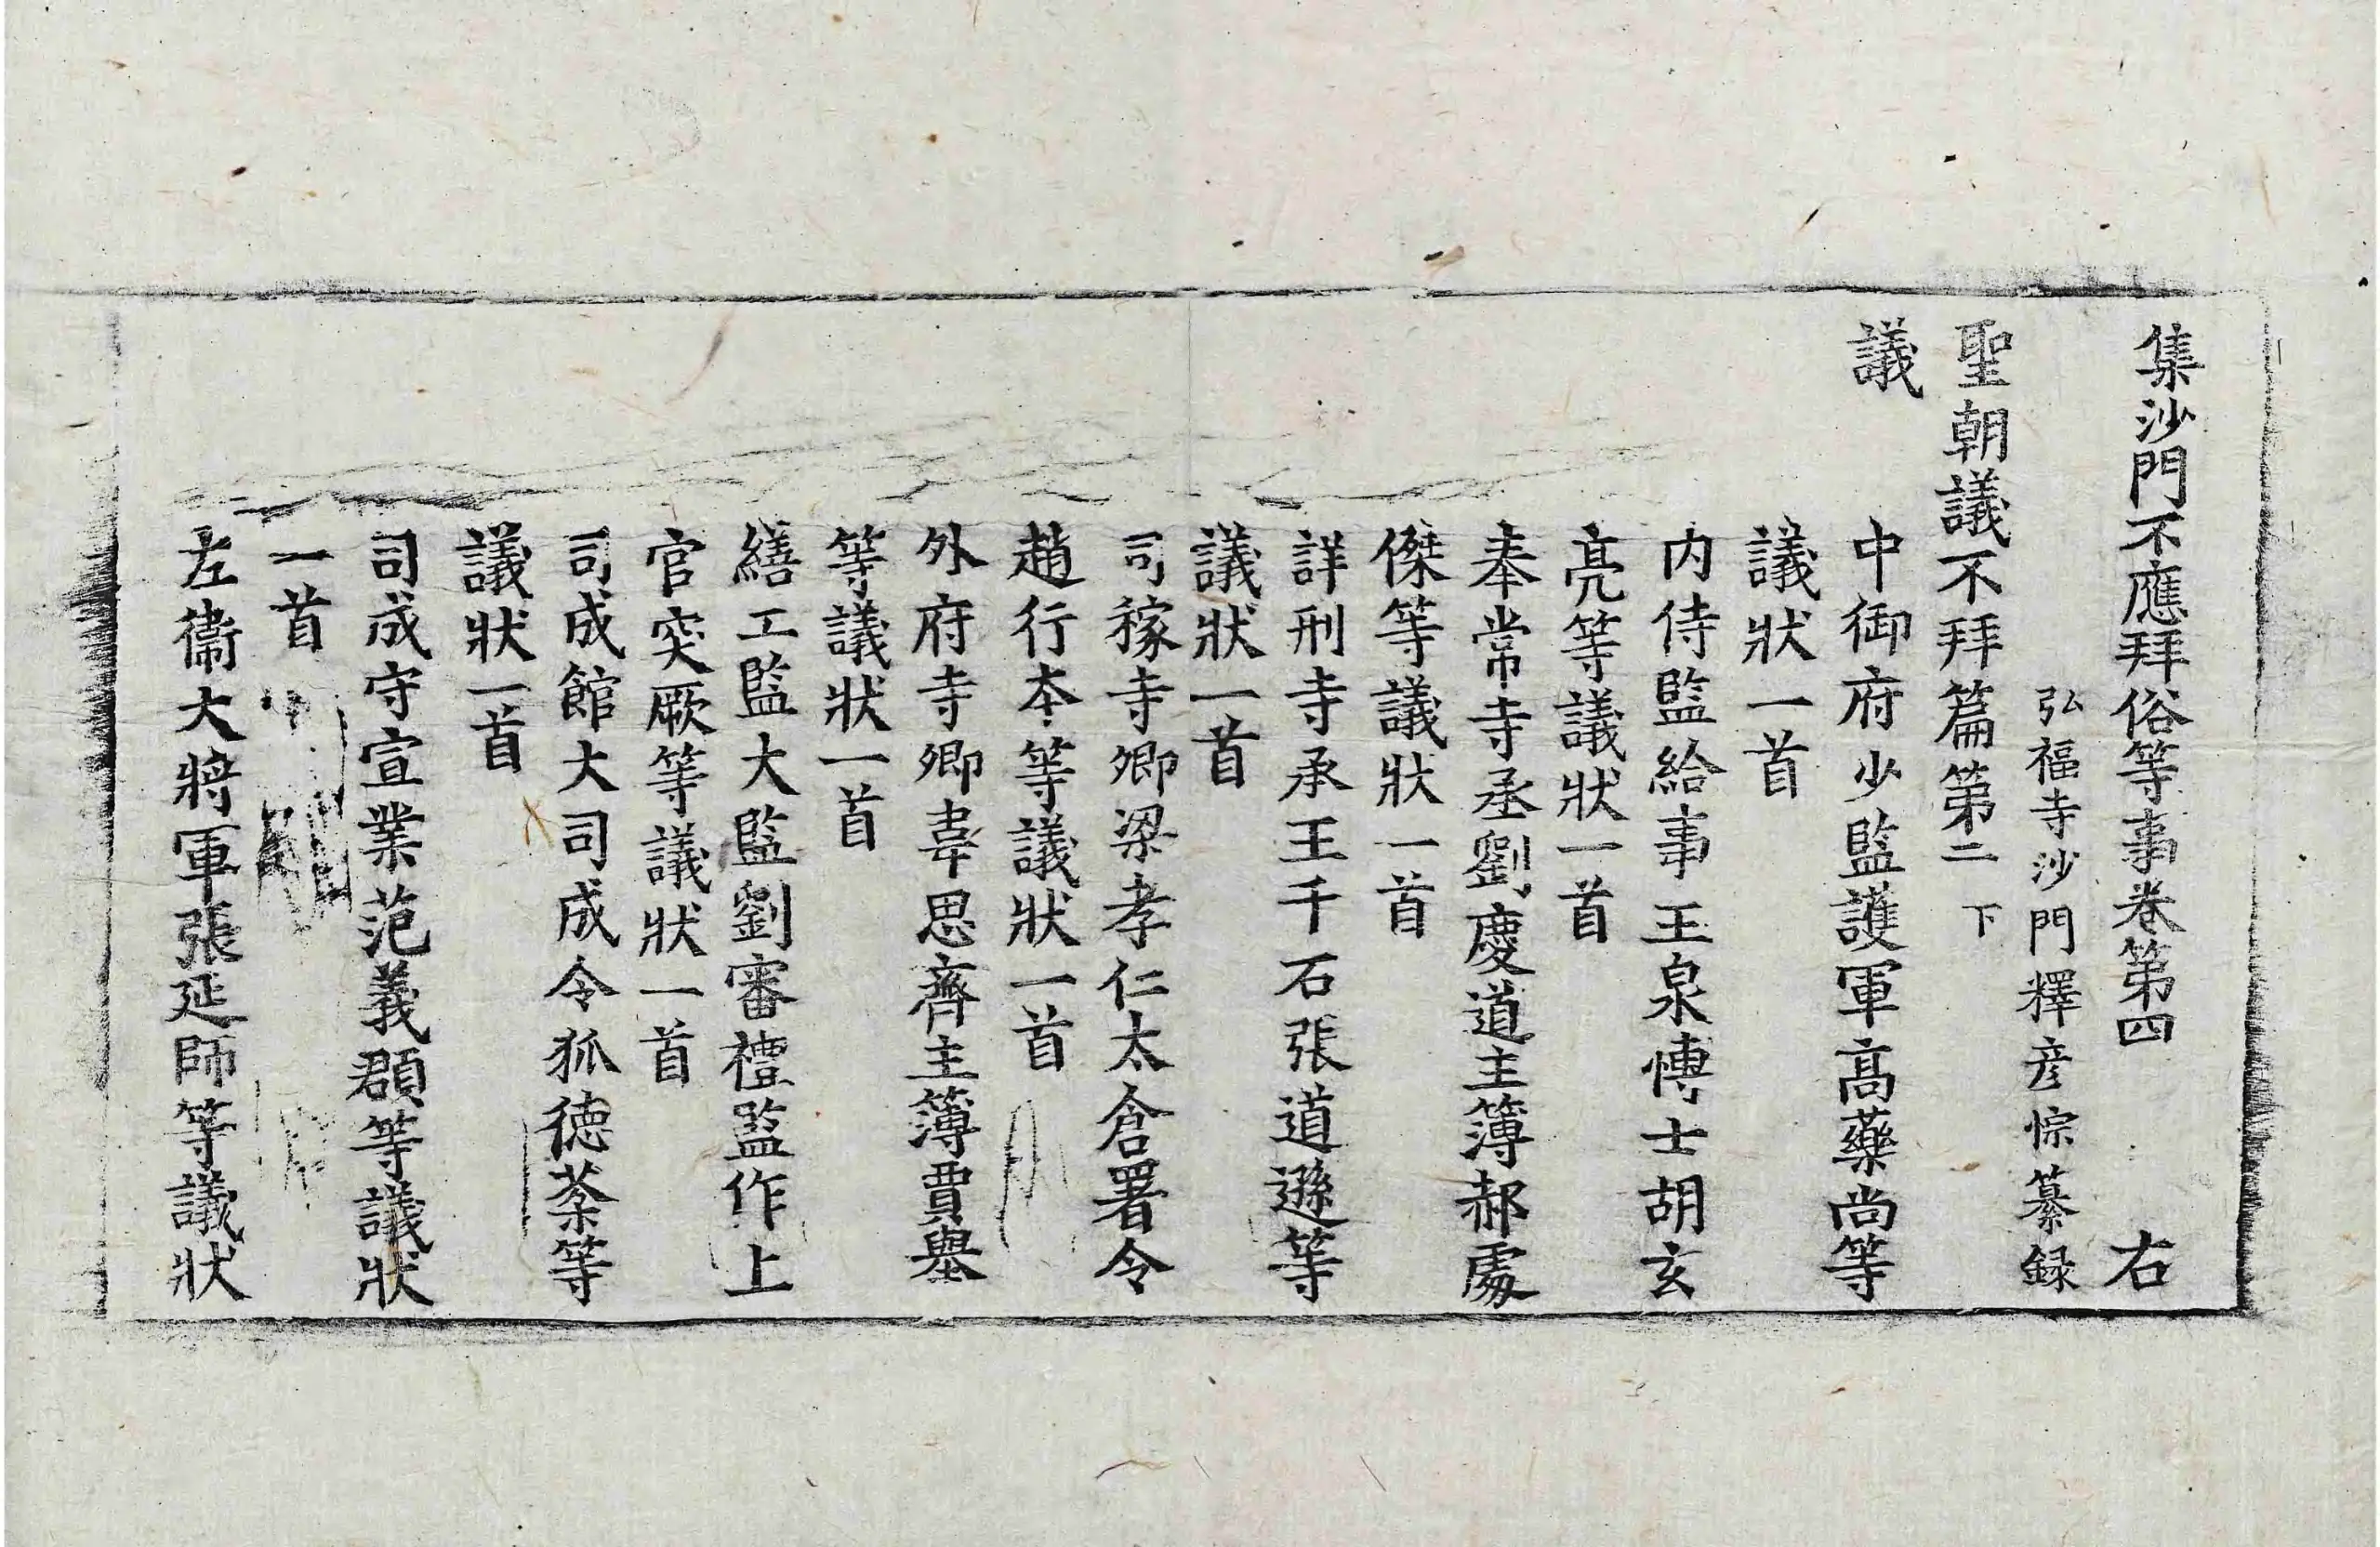 集沙門不應拜俗等事卷第四 右
弘福寺沙門釋彦悰纂録
聖朝議不拜篇第二 下
議
中御府少監護軍高藥尚等
議狀一首
内侍監給事王泉愽士胡玄
亮等議狀一首
奉常寺丞劉慶道主簿郝處
傑等議狀一首
詳刑寺承王千石張道遜等
議狀一首
司稼寺卿梁孝仁太倉署令
趙行本等議狀一首
外府寺卿韋思齊主簿賈舉
等議狀一首
繕工監大監劉審禮監作上
官突厥等議狀一首
司成館大司成令狐徳棻等
議狀一首
司成守宣業范義頵等議狀
一首
左衞大將軍張延師等議狀